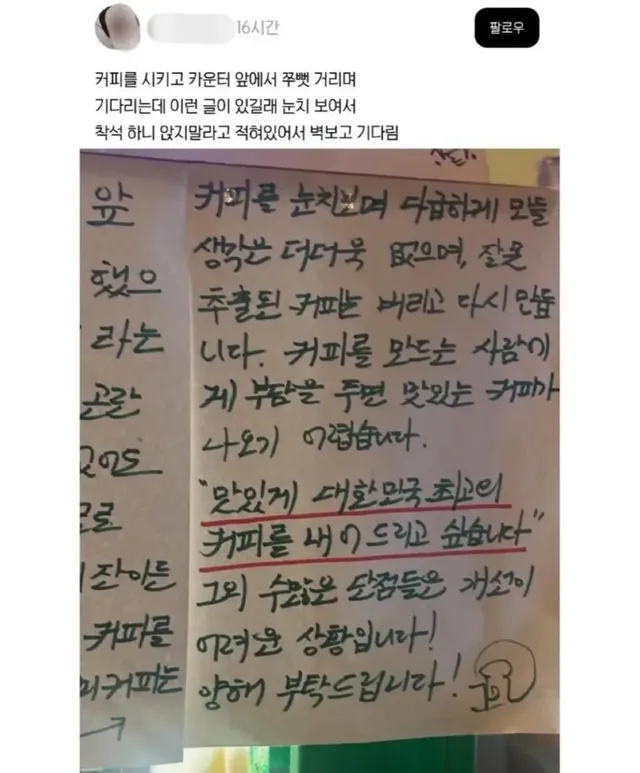 16시간
팔로우
커피를 시키고 카운터 앞에서 쭈뼛 거리며
기다리는데 이런 글이 있길래 눈치 보여서
착석 하니 앉지말라고 적혀있어서 벽보고 기다림
앞
했으
라는
곤란
모로
잔이든
커피를
커피는
커피를 눈치보며 다급하게 만들
생각은 더더욱 없으며, 잘못
추출된 커피는 버리고 다시 만듭
니다. 커피를 만드는 사람에
게 부담을 주면 맛있는 커피가
나오기 어렵습니다.
"맛있게 대한민국 최고의
커피를 내어 드리고 싶습니다"
그외 수많은 단점들은 개선이
어려운 상황입니다!
양해 부탁드립니다!